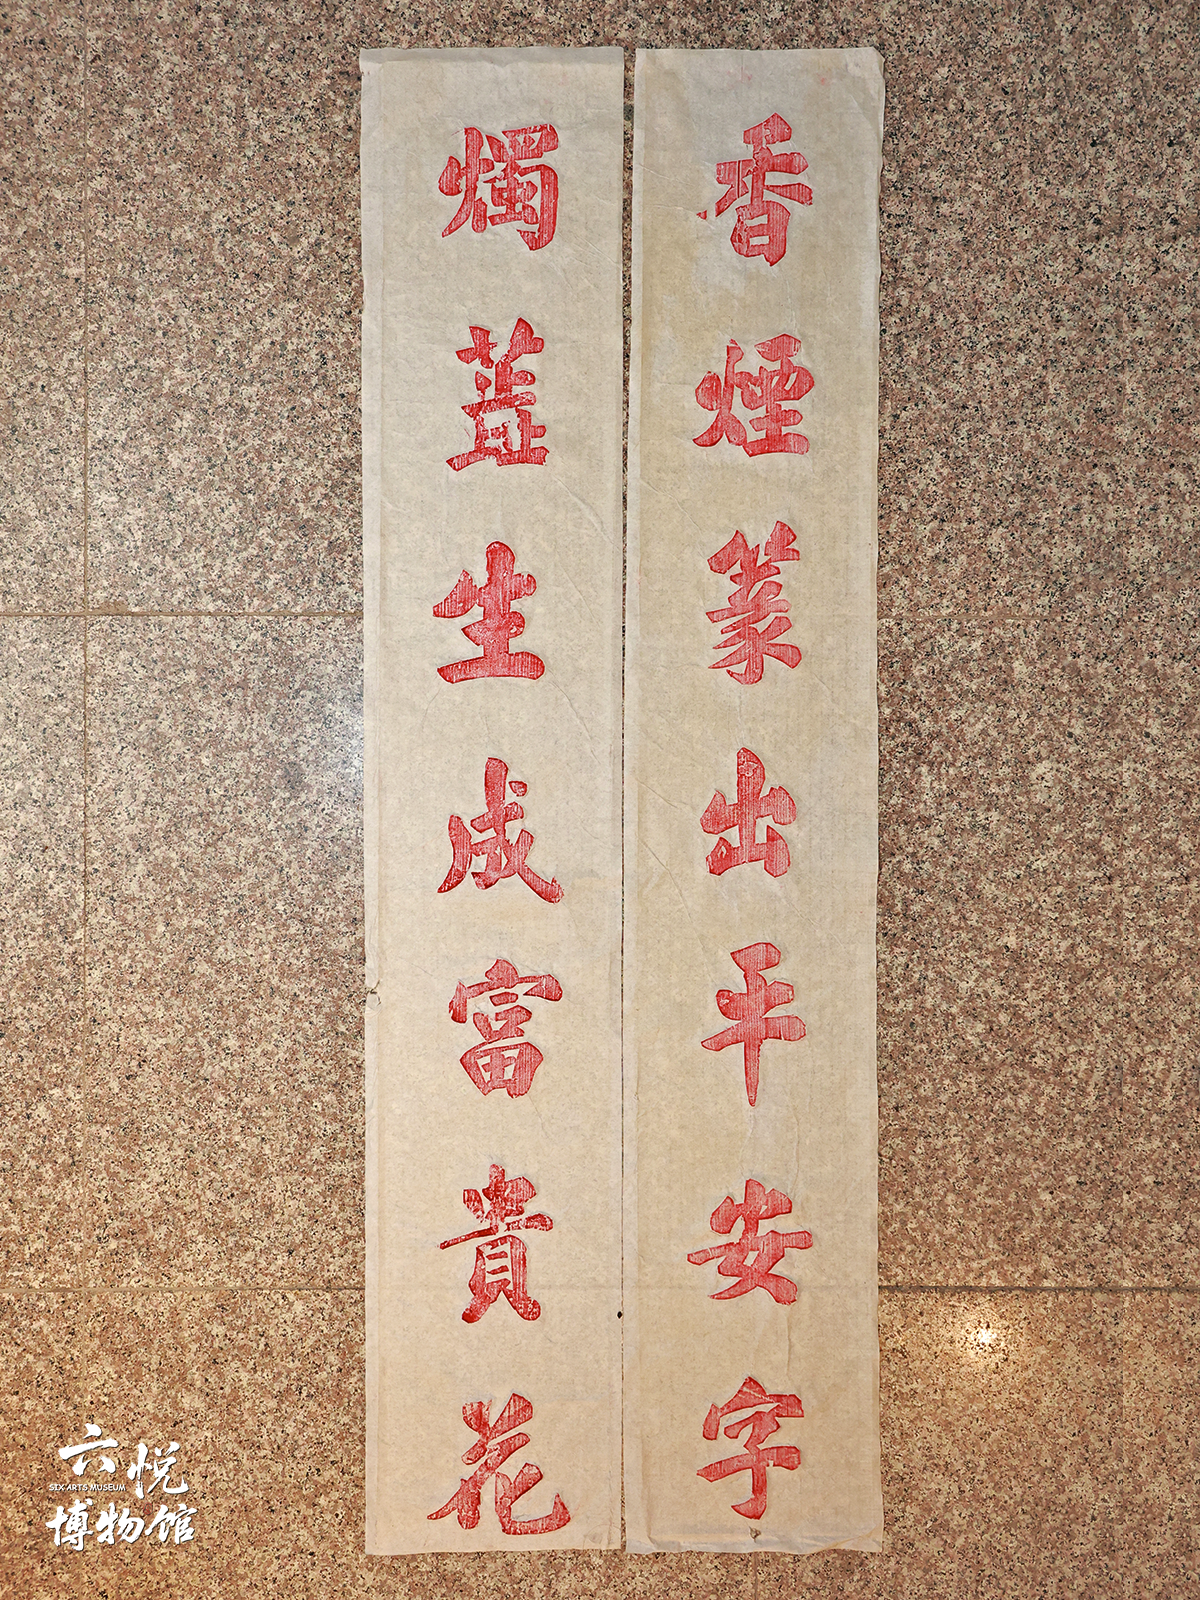 香煙篆出平安字
燭蕋生成富貴花
六悦
SIX ARTS MUSEUM
博物馆